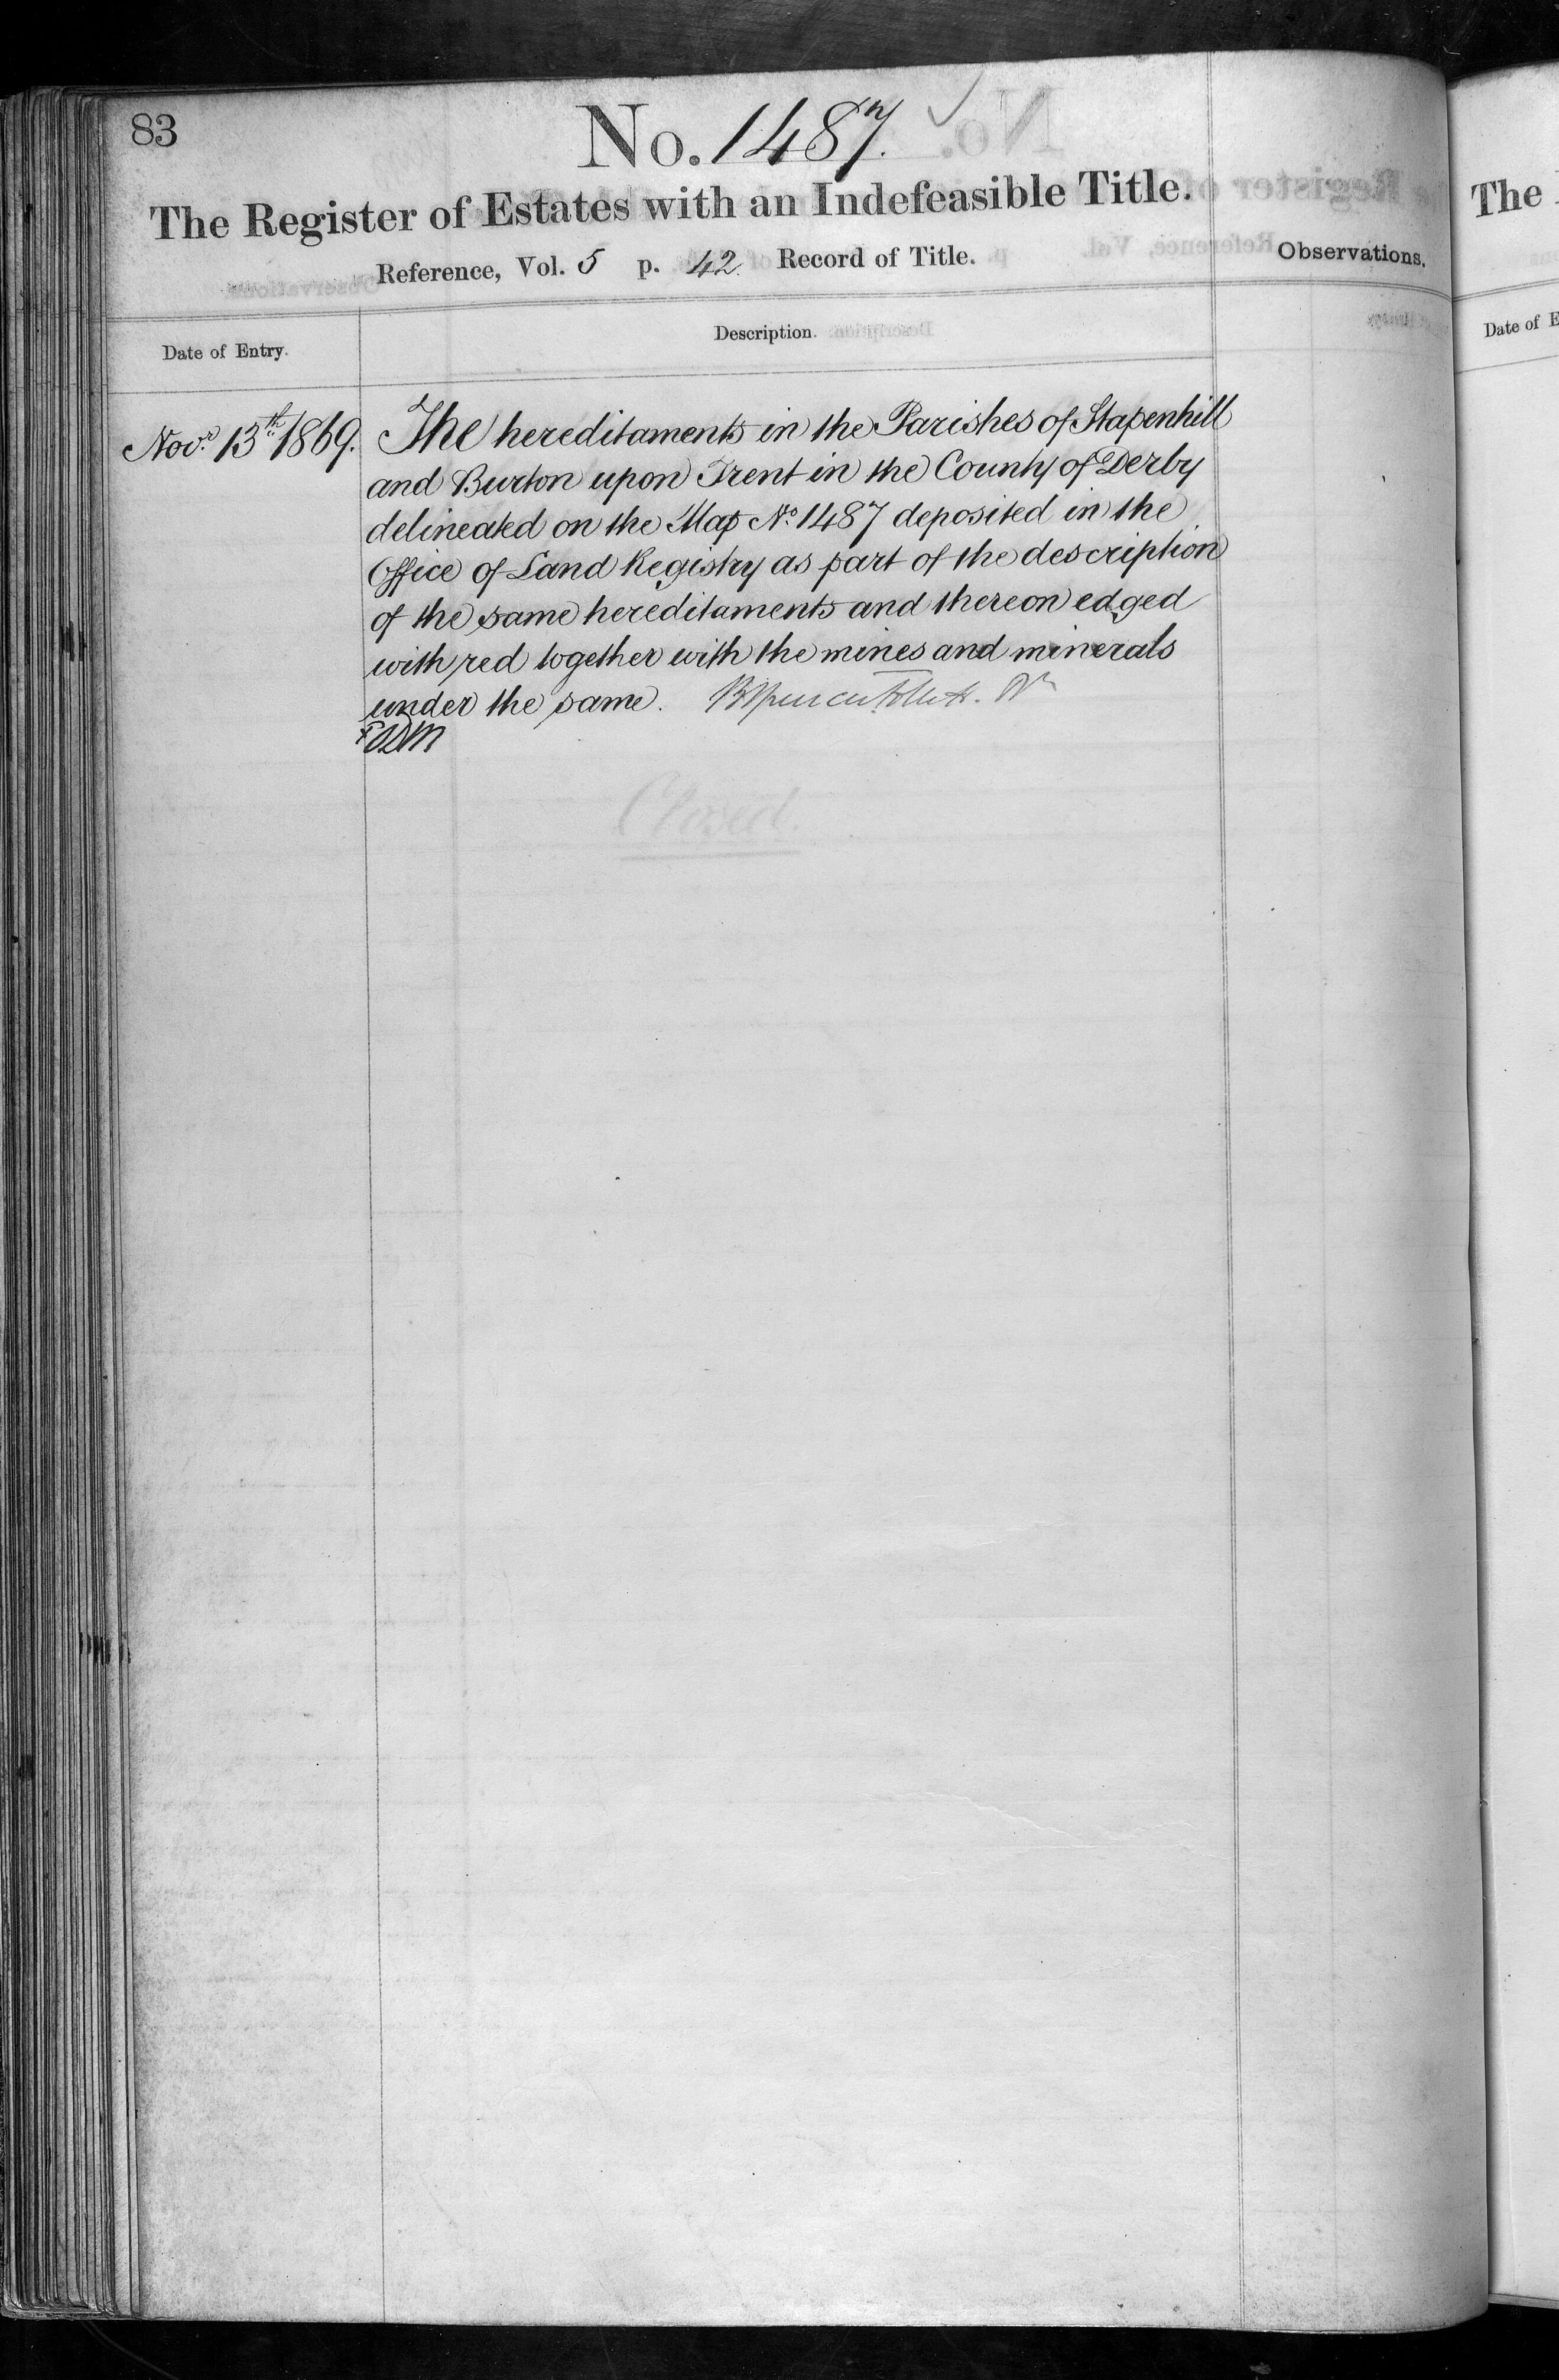 83
No. 1487.
The Register of Estates with an Indefeasible Title.
Reference, Vol. 5 p. 42. Record of Title.
Observations.
Date of Entry.
Description.
Novr. 13th 1869.
The hereditaments in the Parishes of Stapenhill
and Burton upon Trent in the County of Derby
delineated on the Map No. 1487 deposited in the
Office of Land Registry as part of the description
of the same hereditaments and thereon edged
with red together with the mines and minerals
under the same.
Closed.
The
Date of E